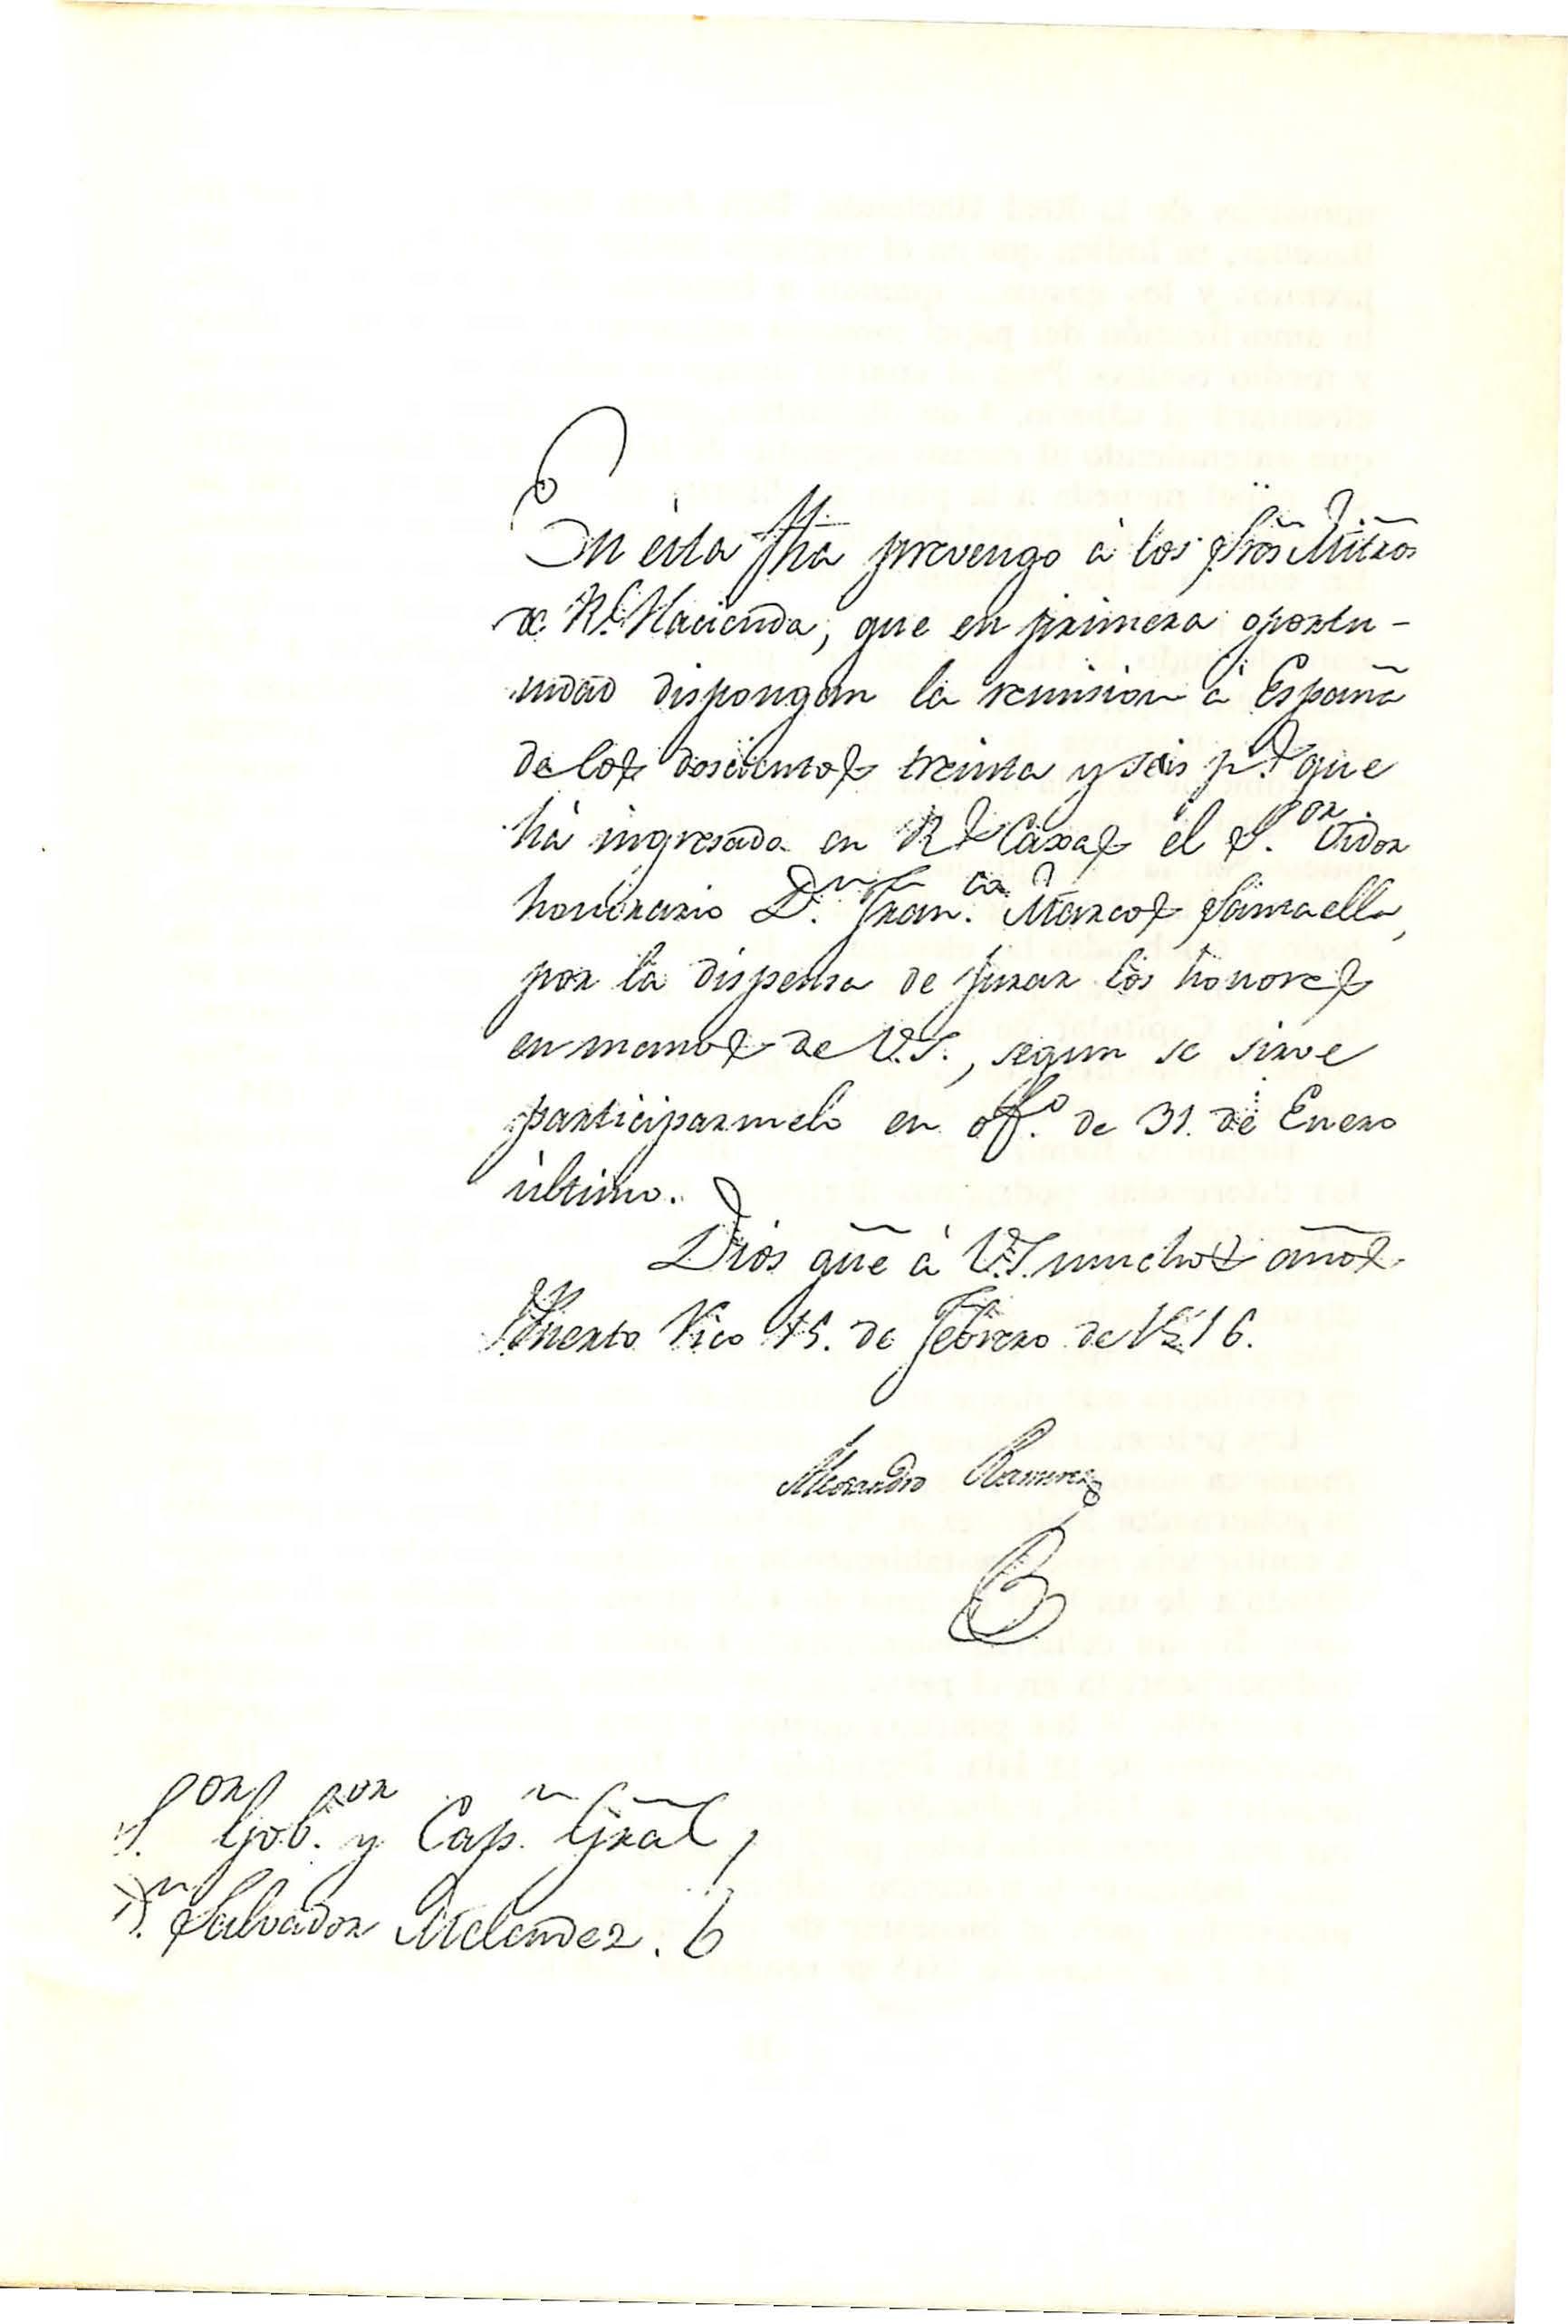 En esta fha prevengo à los Sres Mitros
de Rl. Hacienda, que en primera oportu-
nidad dispongan la remision à España
de los doscientos treinta y seis ps. que
hà ingresado en Rs. Caxas el S.or Oidor
honorario Dn. Fran.co Marcos Santaella,
por la dispensa de jurar los honores
en manos de V.S., segun se sirve
participarmelo en offo. de 31. de Enero
ùltimo.
Dios gũe à V.S. muchos años.
Puerto Rico 15. de Febrero de 1816.
Alexandro Ramirez
S.or Gob.or y Cap.n Gral,
Dn. Salvador Melendez.